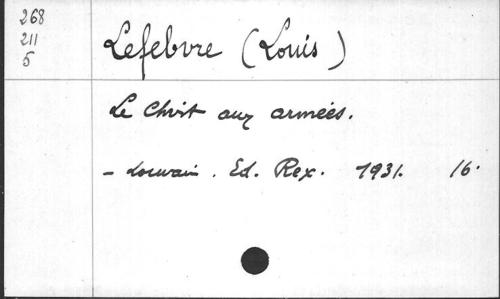 268
211
5
Lefebvre (Louis)
Le Christ aux armées.
- Louvain. Ed. Rex. 1931. 16.